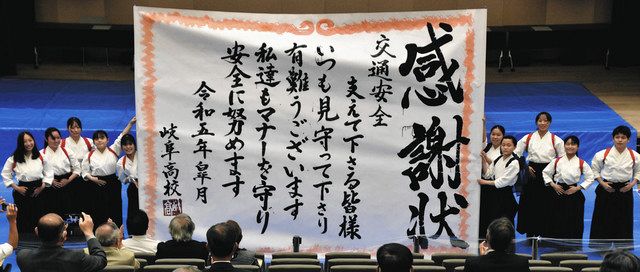 感謝状
交通安全
支えて下さる皆様
いつも見守って下さり
有難うございます
私達もマナーを守り
安全に努めます
令和五年皐月
岐阜高校